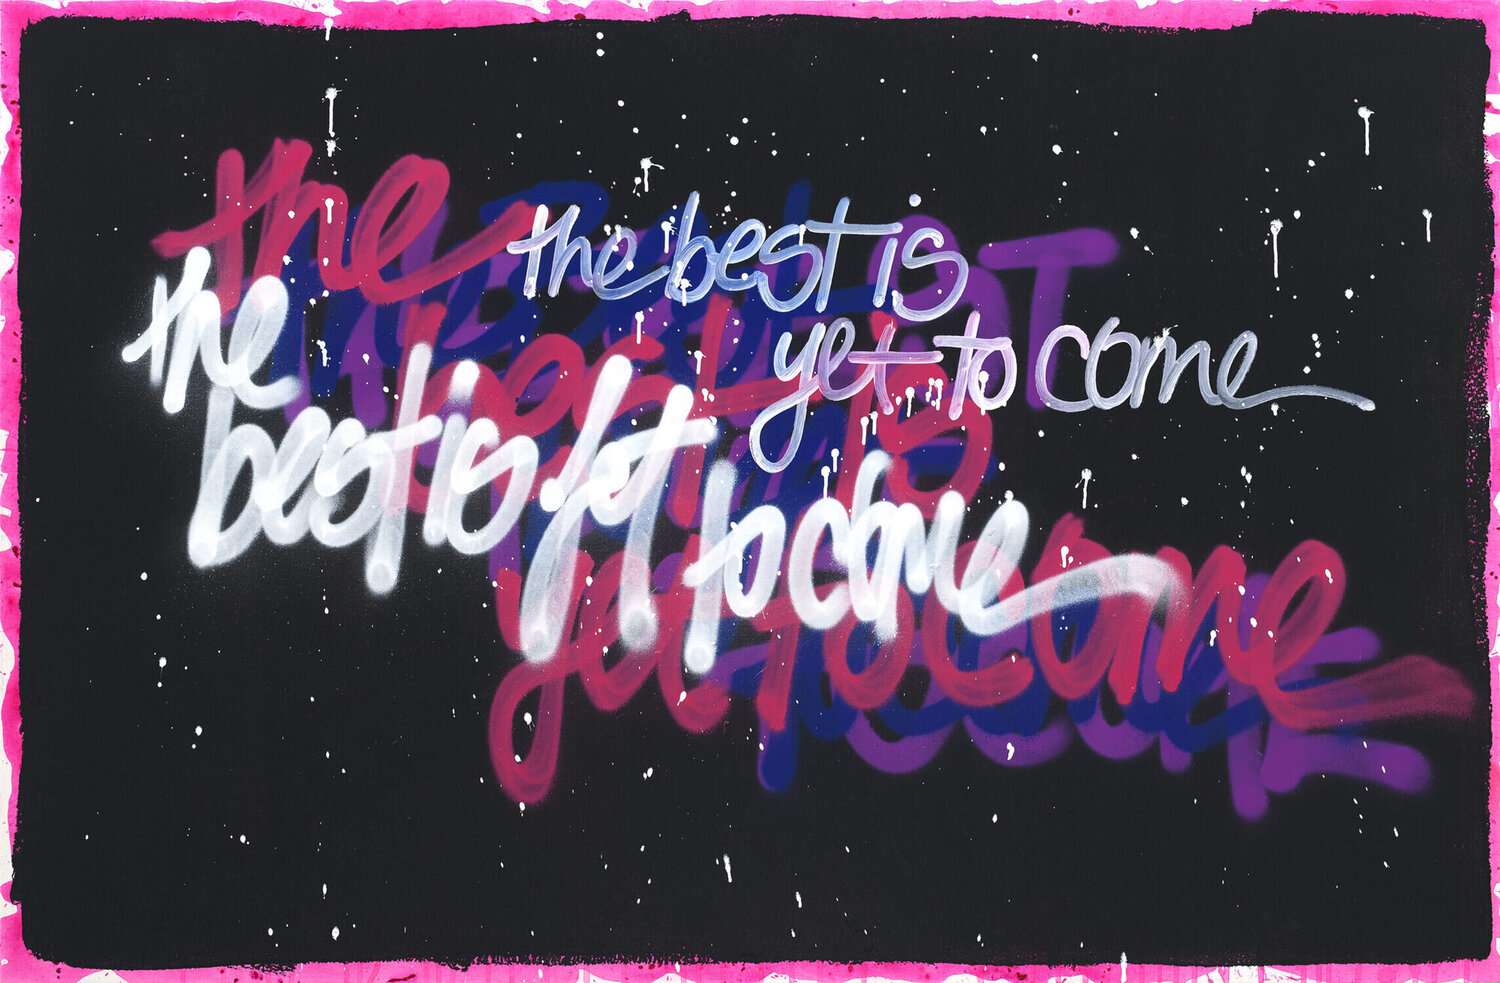 the
best is
yet to come
the best is
yet to come
the
best is yet to come